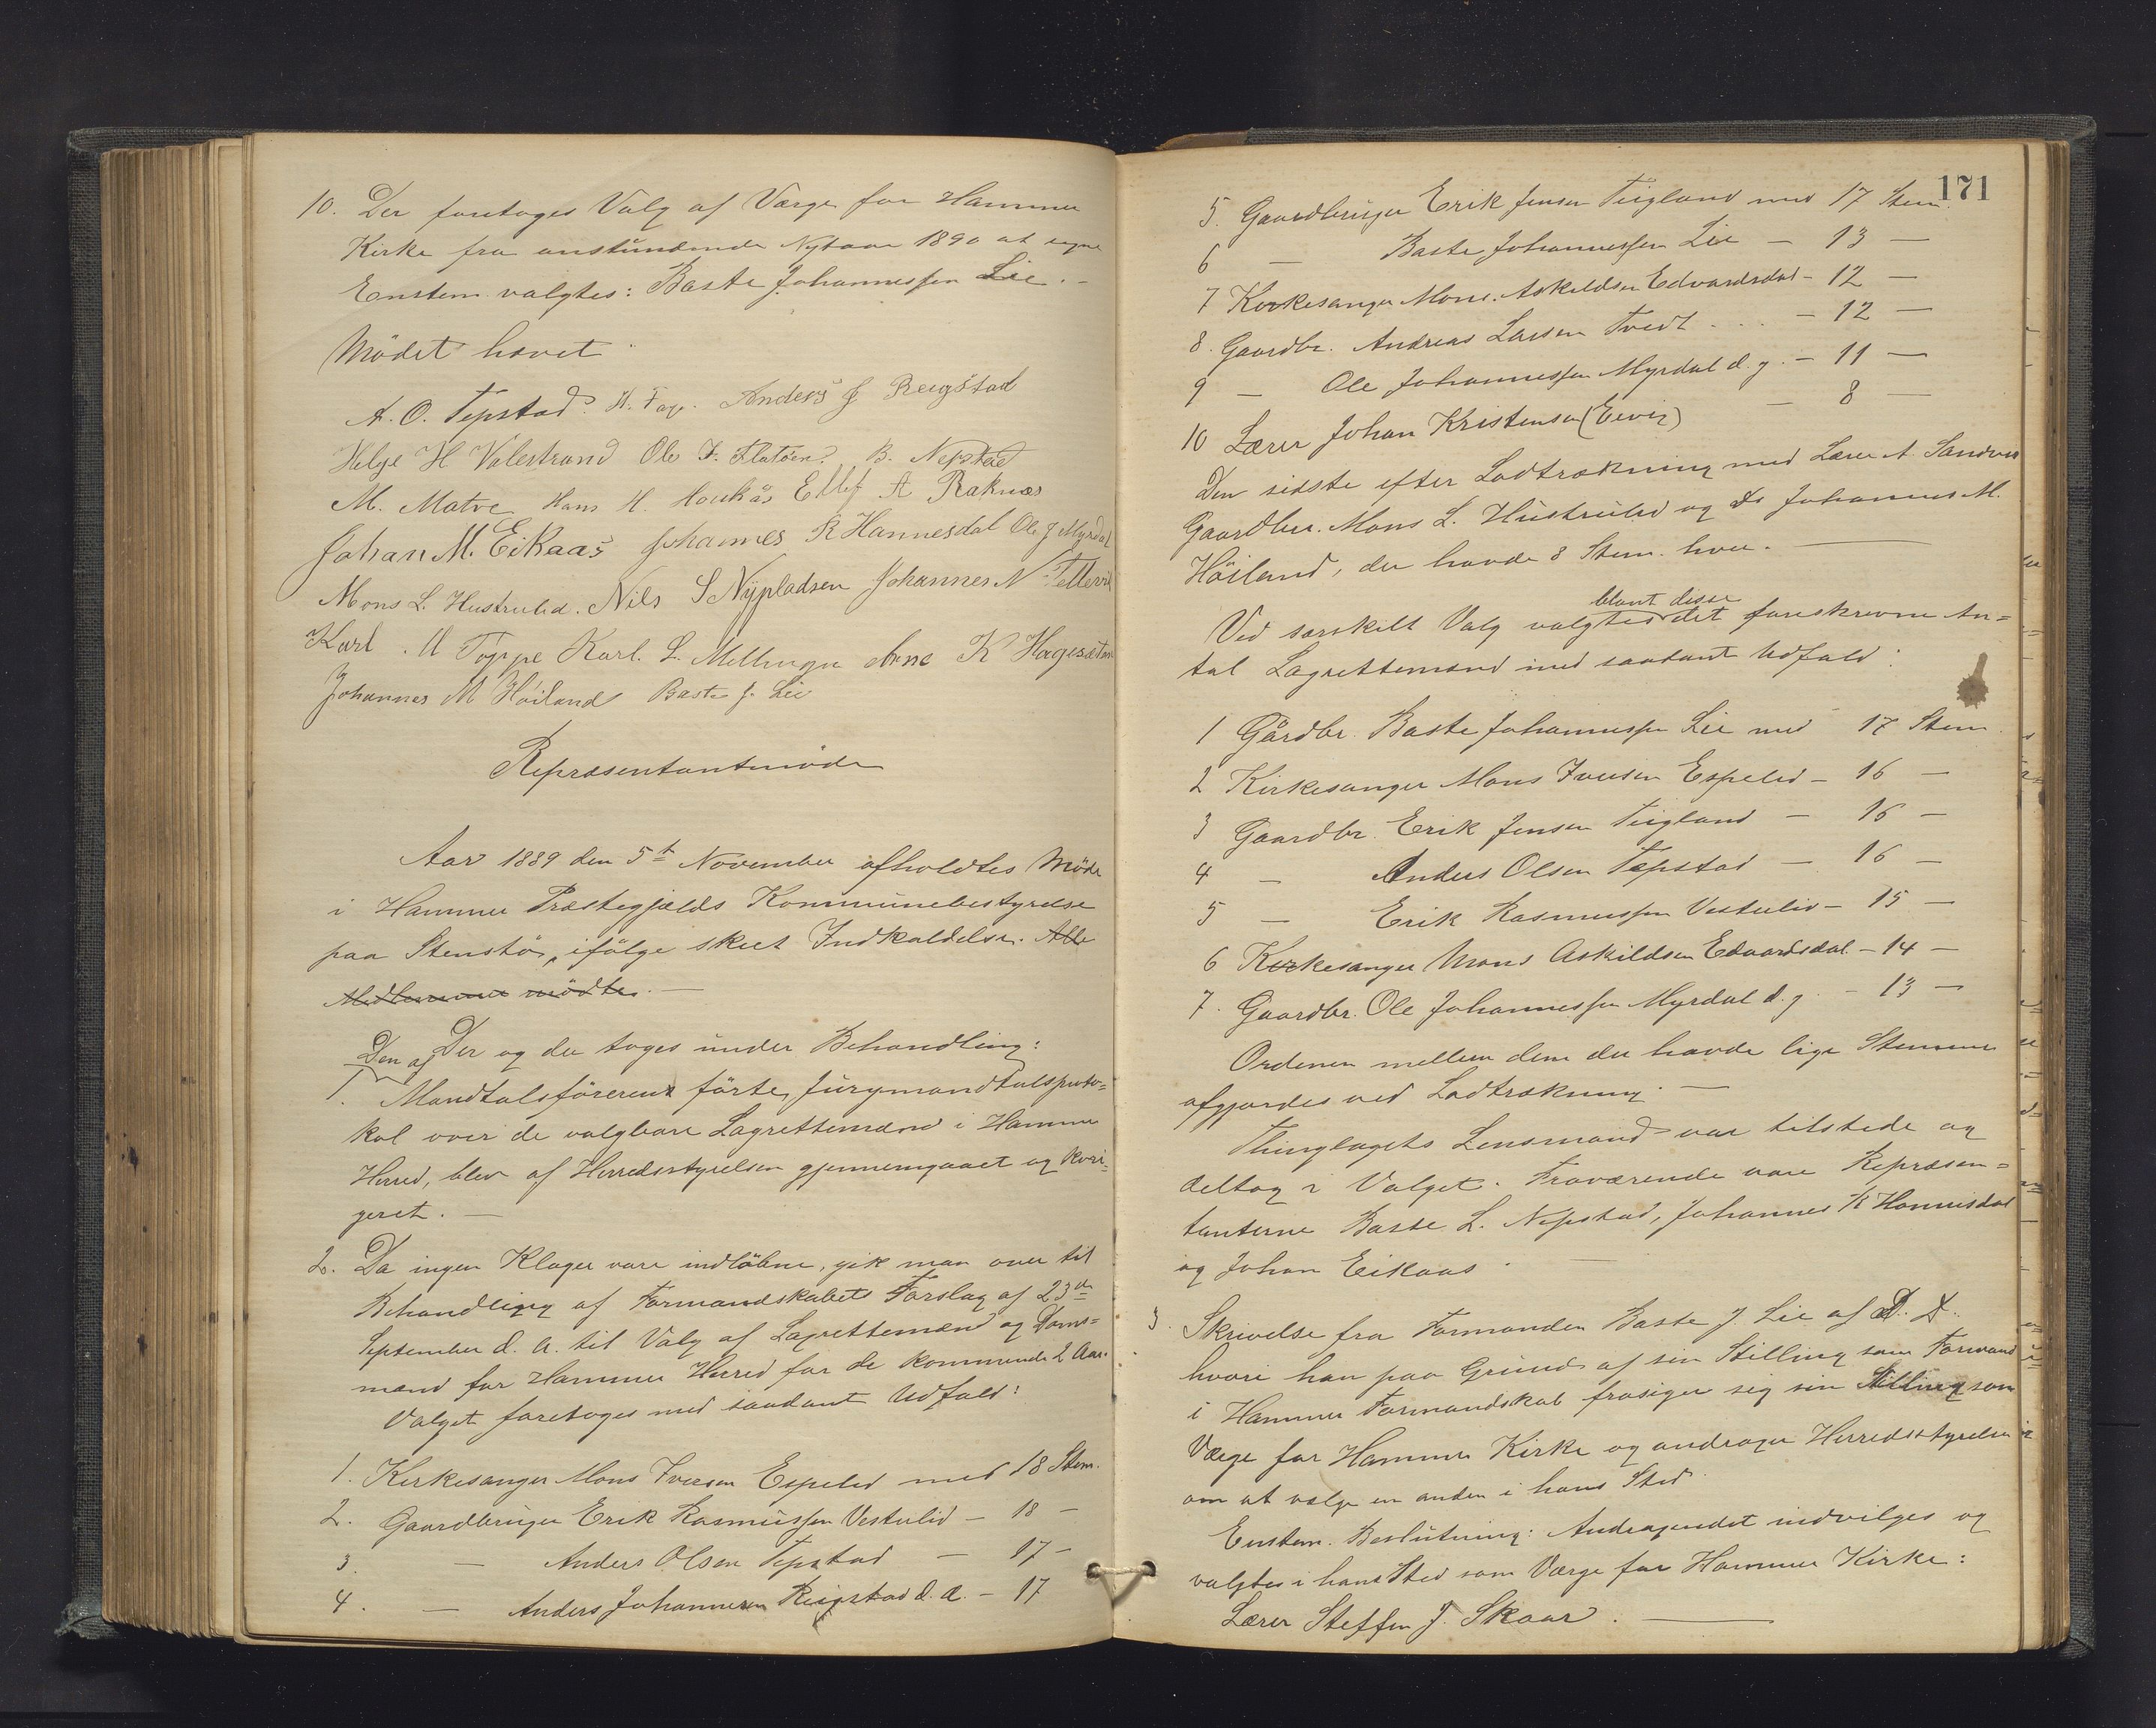 10. Der foretoges Valg af Værge for Hammer
Kirke fra anstundende Nytaar 1890 at regne
Enstem. valgtes: Baste Johannessen Lie.-
Mödet hævet.
A. O. Tepstad. H. Anders J Reigstad
Helge H Valestrand Ole J. Flatöen. B. Nepstad
M. Matre Hans H. Houkås Ellef A Raknæs
Johan M. Eikaas Johannes R Hannesdal Ole J Myrdal
Mons L. Hustrulid. Nils S Nÿpladsen Johannes N Tellevik
Karl. M Toppe Karl. L. Mellingen Arne K Hagesæter
Johannes M Höiland Baste J. Lie
Repræsentantmöde
Aar 1889 den 5te November afholdtes Möde
i Hammer Præstegjælds Kommunebestyrelse
paa Stenstö, ifölge skeet Indkaldelse. Alle
Medlemmer mödte.-
Der og der toges under Behandling:
1. Den af Mandtalsföreren förte Jurymandtalsproto=
kol over de valgbare Lagrettemænd i Hammer
Herred, blev af Herredsstyrelsen gjennemgaaet og kori-
geret.-
2. Da ingen Klager vare indlöbne, gik man over til
Behandling af Formandskabets Forslag af 23de
September d. A. til Valg af Lagrettemænd og Doms=
mænd for Hammer Herred for de kommende 2 Aar.
Valget foretoges med saadant Udfald:
1. Kirkesanger Mons Iversen Espelid med 18 Stem.
2. Gaardbruger Erik Rasmussen Vestrelid - 18 -
3. - Anders Olsen Tepstad - 17 -
4. - Anders Johannessen Reigstad d. æ. - 17
171
5. Gaardbruger Erik Jensen Teigland med 17 Stem.
6 - Baste Johannessen Lie - 13 -
7 Kirkesanger Mons. Askildsen Edvardsdal - 12 -
8. Gaardbr. Andreas Larsen Tvedt ... - 12 -
9 - Ole Johannessen Myrdal d. y. - 11 -
10 Lærer Johan Kristensen (Eevig) - 8 -
Den sidste efter Lodtrækning med Lærer A. Sandvik
Gaardbr. Mons L. Hustrulid og Do Johannes M.
Höiland, der havde 8 Stem. hver.
Ved særskilt Valg valgtes blant disse det foreskrevne An=
tal Lagrettemænd med saadant Udfald:
1 Gårdbr. Baste Johannessen Lie med 17 Stem
2 Kirkesanger Mons Iversen Espelid - 16 -
3 Gaardbr. Erik Jensen Teigland - 16 -
4 - Anders Olsen Tepstad - 16 -
5 - Erik Rasmussen Vestrelid - 15 -
6 Kirkesanger Mons Askildsen Edvardsdal - 14 -
7. Gaardbr. Ole Johannessen Myrdal d. y. - 13 -
Ordenen mellem dem der havde lige Stemmer
afgjordes ved Lodtrækning.-
Thinglagets Lensmand var tilstede og
deltog i Valget. Fraværende vare Repræsen=
tanterne Baste L. Nepstad, Johannes R Hannisdal
og Johan Eikaas.
3. Skrivelse fra Formanden Baste J. Lie af D. D.
hvori han paa Grund af sin Stilling som Formand
i Hammer Formandskab frasiger sig sin Stilling som
Værge for Hammer Kirke og andrager Herredsstyrelsen
om at vælge en anden i hans Sted
Enstem. Beslutning: Andragendet indvilges og
valgtes i hans Sted som Værge for Hammer Kirke:
Lærer Steffen J. Skaar.